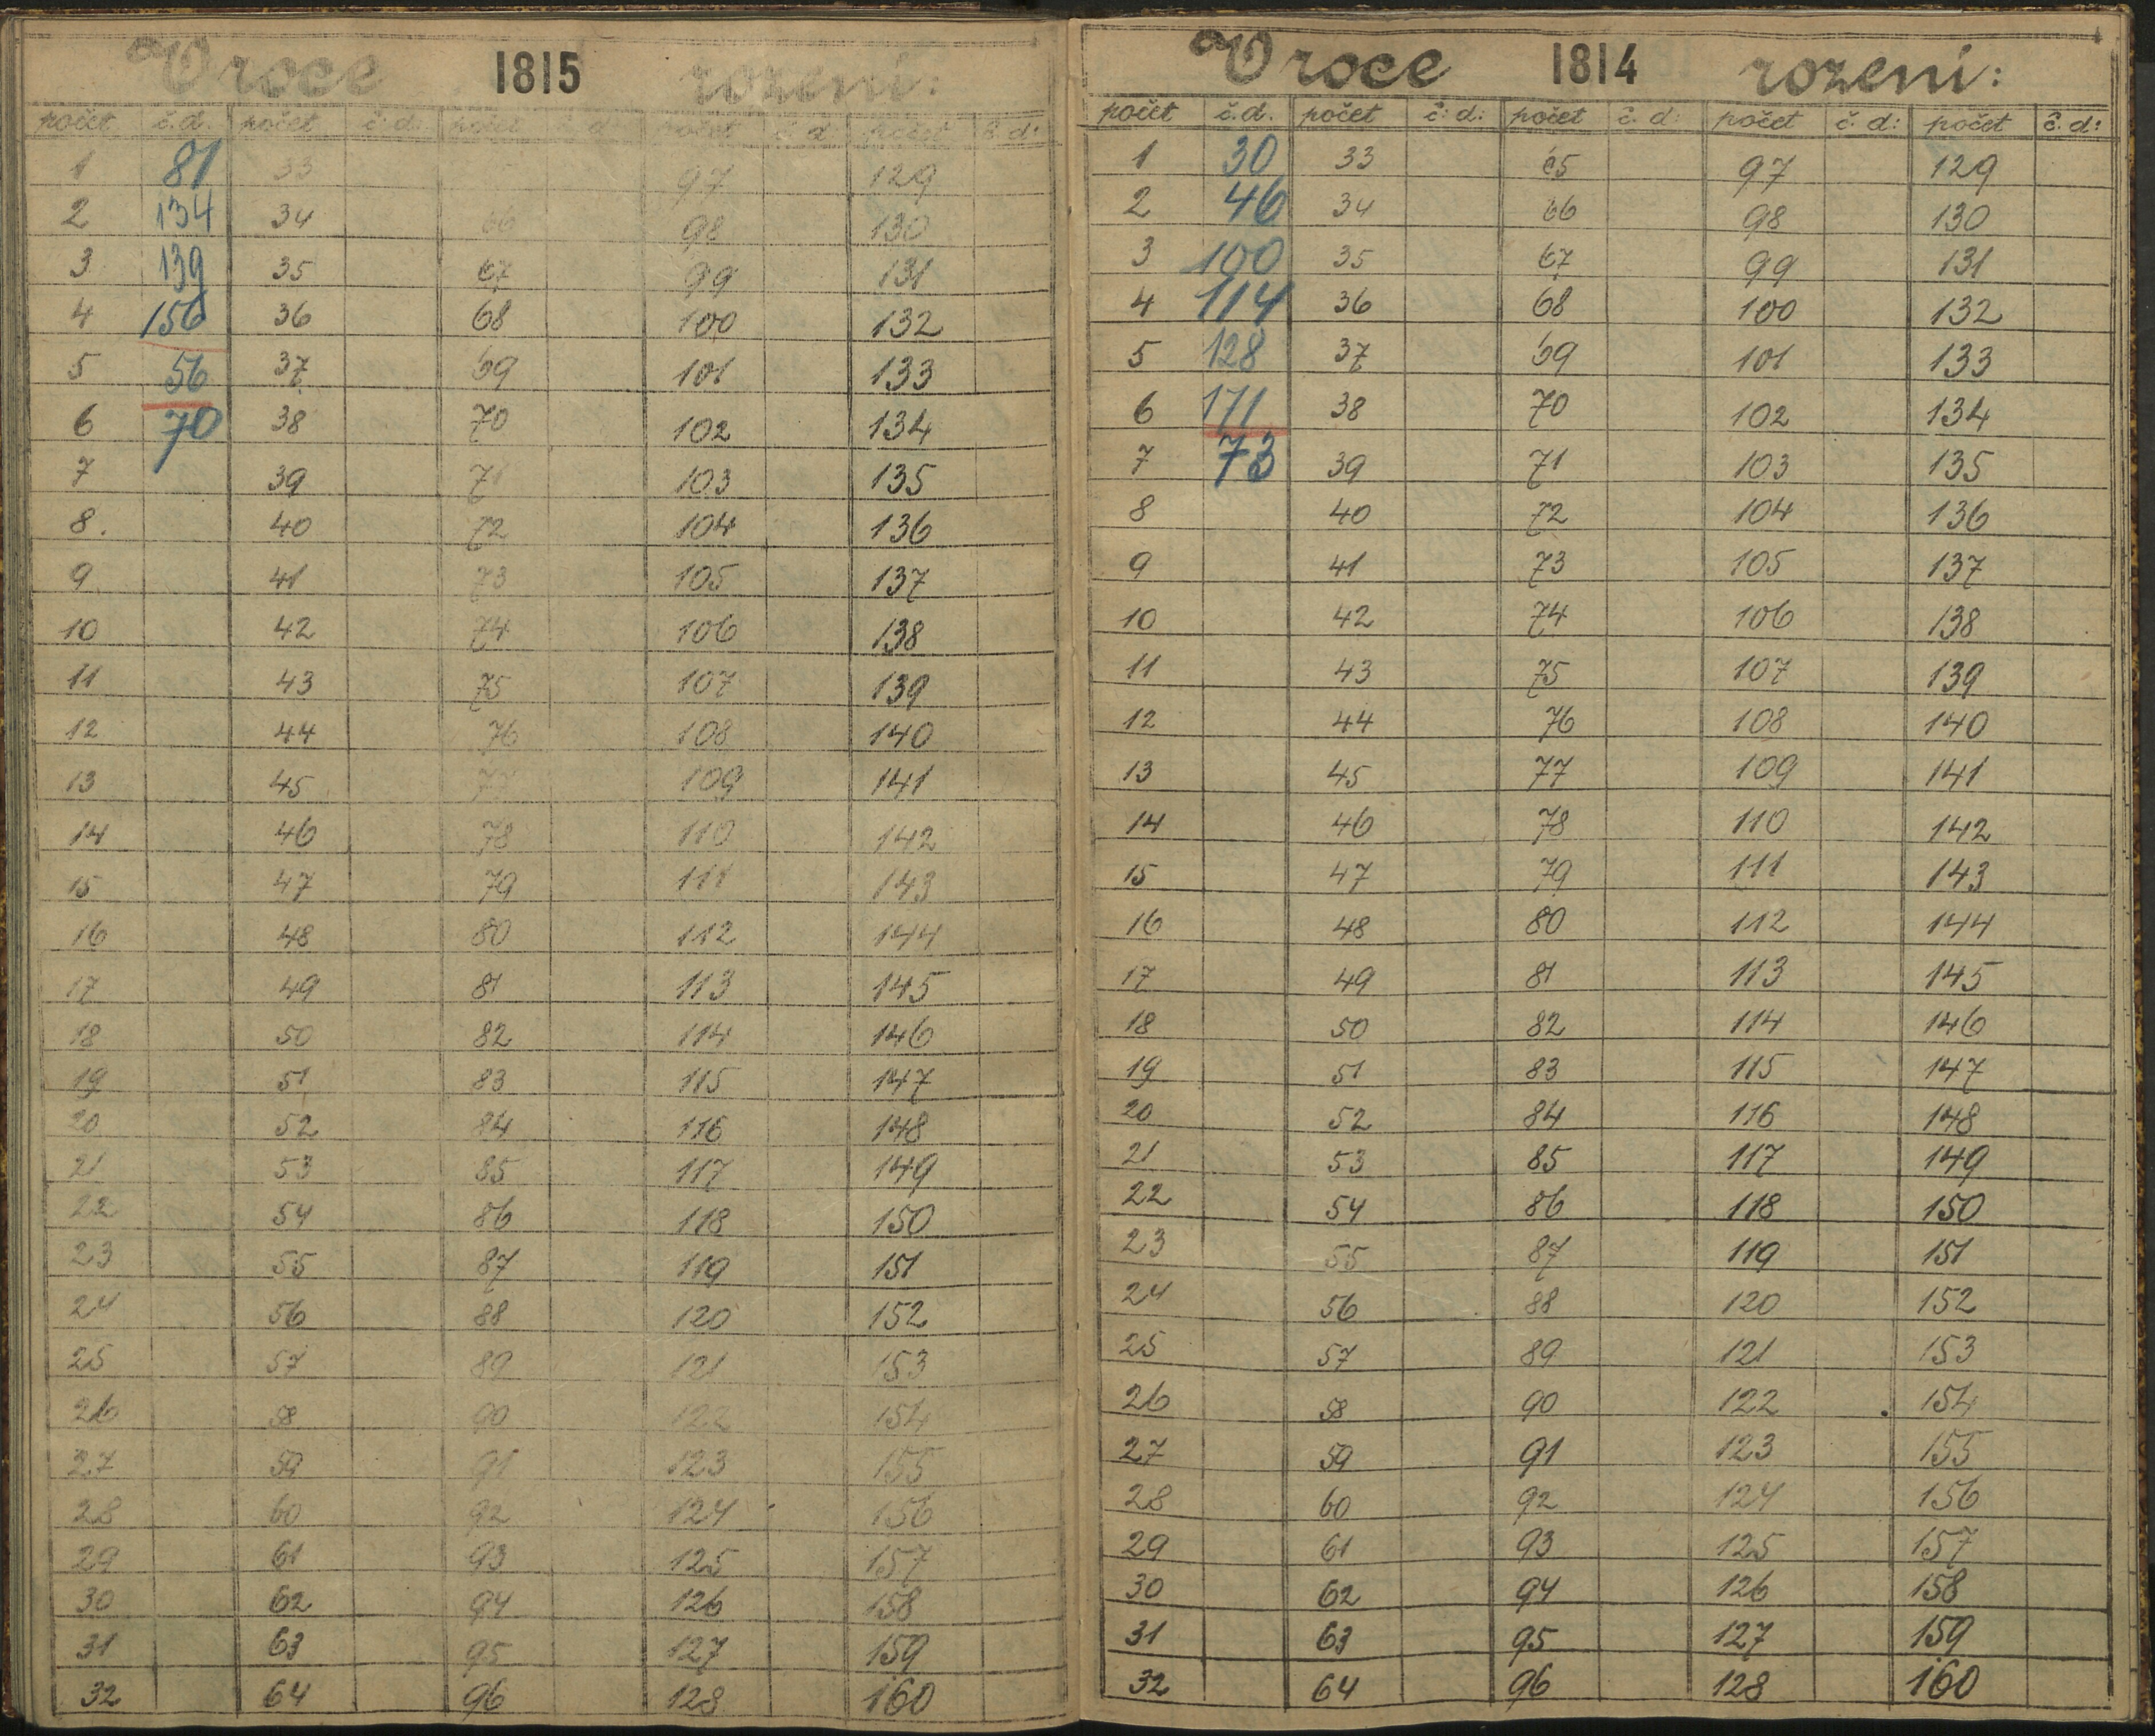 V roce 1815 rození:
počet č.d. počet č: d: počet č. d: počet č. d počet č. d:
1 81 33 97 129
2 134 34 66 98 130
3 139 35 67 99 131
4 156 36 68 100 132
5 56 37 69 101 133
6 70 38 70 102 134
7 39 71 103 135
8. 40 72 104 136
9 41 73 105 137
10 42 74 106 138
11 43 75 107 139
12 44 76 108 140
13 45 77 109 141
14 46 78 110 142
15 47 79 111 143
16 48 80 112 144
17 49 81 113 145
18 50 82 114 146
19 51 83 115 147
20 52 84 116 148
21 53 85 117 149
22 54 86 118 150
23 55 87 119 151
24 56 88 120 152
25 57 89 121 153
26 58 90 122 154
27 59 91 123 155
28 60 92 124 156
29 61 93 125 157
30 62 94 126 158
31 63 95 127 159
32 64 96 128 160
V roce 1814 rození:
počet č.d. počet č: d: počet č. d: počet č. d: počet č. d:
1 30 33 65 97 129
2 46 34 66 98 130
3 100 35 67 99 131
4 114 36 68 100 132
5 128 37 69 101 133
6 171 38 70 102 134
7 73 39 71 103 135
8 40 72 104 136
9 41 73 105 137
10 42 74 106 138
11 43 75 107 139
12 44 76 108 140
13 45 77 109 141
14 46 78 110 142
15 47 79 111 143
16 48 80 112 144
17 49 81 113 145
18 50 82 114 146
19 51 83 115 147
20 52 84 116 148
21 53 85 117 149
22 54 86 118 150
23 55 87 119 151
24 56 88 120 152
25 57 89 121 153
26 58 90 122 154
27 59 91 123 155
28 60 92 124 156
29 61 93 125 157
30 62 94 126 158
31 63 95 127 159
32 64 96 128 160